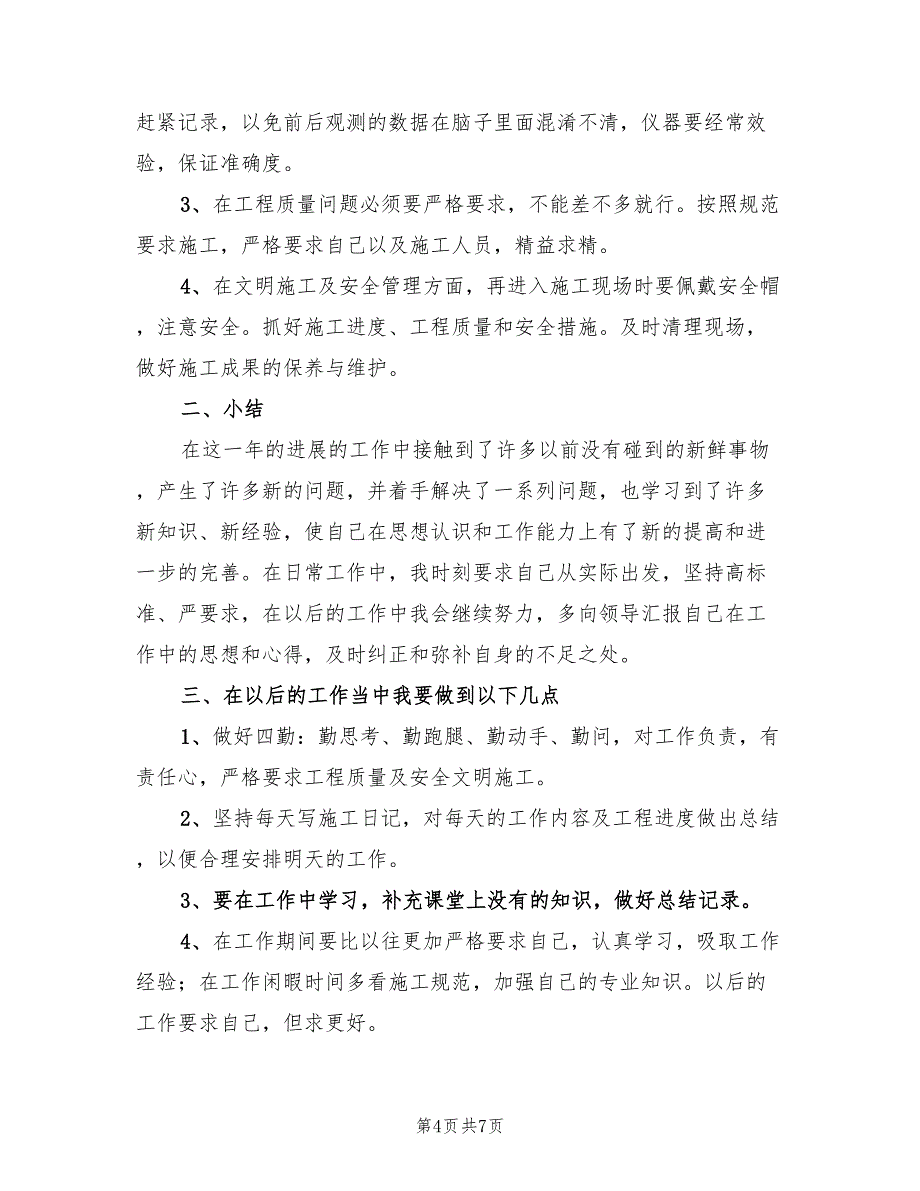 赶紧记录，以免前后观测的数据在脑子里面混淆不清，仪器要经常效
验，保证准确度。
3、在工程质量问题必须要严格要求，不能差不多就行。按照规范
要求施工，严格要求自己以及施工人员，精益求精。
4、在文明施工及安全管理方面，再进入施工现场时要佩戴安全帽
，注意安全。抓好施工进度、工程质量和安全措施。及时清理现场，
做好施工成果的保养与维护。
二、小结
在这一年的进展的工作中接触到了许多以前没有碰到的新鲜事物
，产生了许多新的问题，并着手解决了一系列问题，也学习到了许多
新知识、新经验，使自己在思想认识和工作能力上有了新的提高和进
一步的完善。在日常工作中，我时刻要求自己从实际出发，坚持高标
准、严要求，在以后的工作中我会继续努力，多向领导汇报自己在工
作中的思想和心得，及时纠正和弥补自身的不足之处。
三、在以后的工作当中我要做到以下几点
1、做好四勤：勤思考、勤跑腿、勤动手、勤问，对工作负责，有
责任心，严格要求工程质量及安全文明施工。
2、坚持每天写施工日记，对每天的工作内容及工程进度做出总结
，以便合理安排明天的工作。
3、要在工作中学习，补充课堂上没有的知识，做好总结记录。
4、在工作期间要比以往更加严格要求自己，认真学习，吸取工作
经验；在工作闲暇时间多看施工规范，加强自己的专业知识。以后的
工作要求自己，但求更好。
第4页共7页